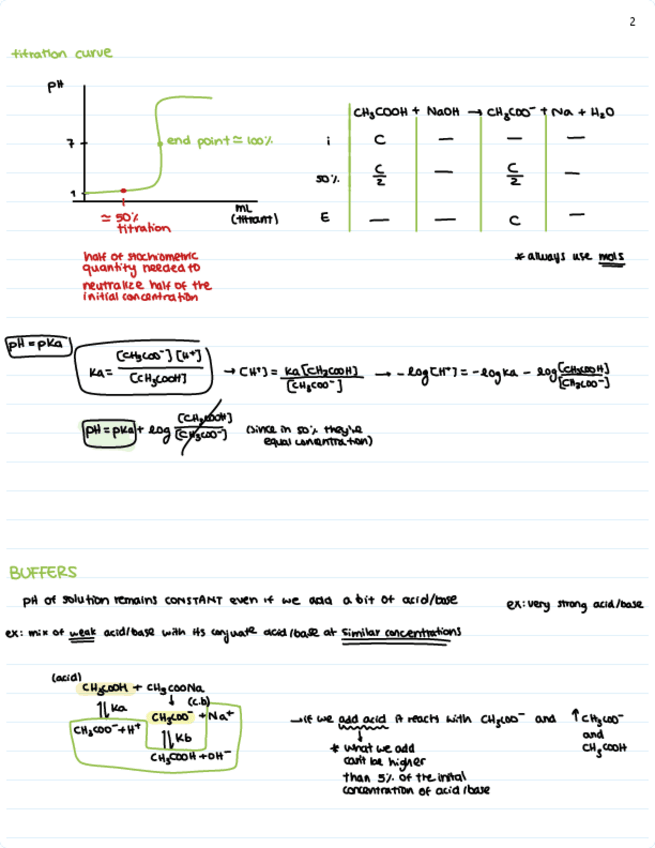 2
titration curve
pH
7
1
end point ≃ 100%
≃ 50% titration
mL (titrant)
half of stochiometric
quantity needed to
neutralize half of the
initial concentration
CH₃COOH + NaOH → CH₃COO⁻ + Na + H₂O
i C — — —
50% C/2 — C/2 —
E — — C —
* always use mols
pH = pKa
Ka = [CH₃COO⁻][H⁺] / [CH₃COOH] → [H⁺] = Ka[CH₃COOH] / [CH₃COO⁻] → -log[H⁺] = -logKa - log [CH₃COOH] / [CH₃COO⁻]
pH = pKa + log [CH₃COOH] / [CH₃COO⁻] (since in 50% they're
equal concentration)
BUFFERS
pH of solution remains CONSTANT even if we add a bit of acid/base
ex: very strong acid/base
ex: mix of weak acid/base with its conjuate acid/base at similar concentrations
(acid)
CH₃COOH + CH₃COONa
⇅ Ka ↓ (c.b)
CH₃COO⁻ + H⁺ CH₃COO⁻ + Na⁺
⇅ Kb
CH₃COOH + OH⁻
→ if we add acid it reacts with CH₃COO⁻ and ↑ CH₃COO⁻
and
CH₃COOH
* what we add
can't be higher
than 5% of the inital
concentration of acid/base